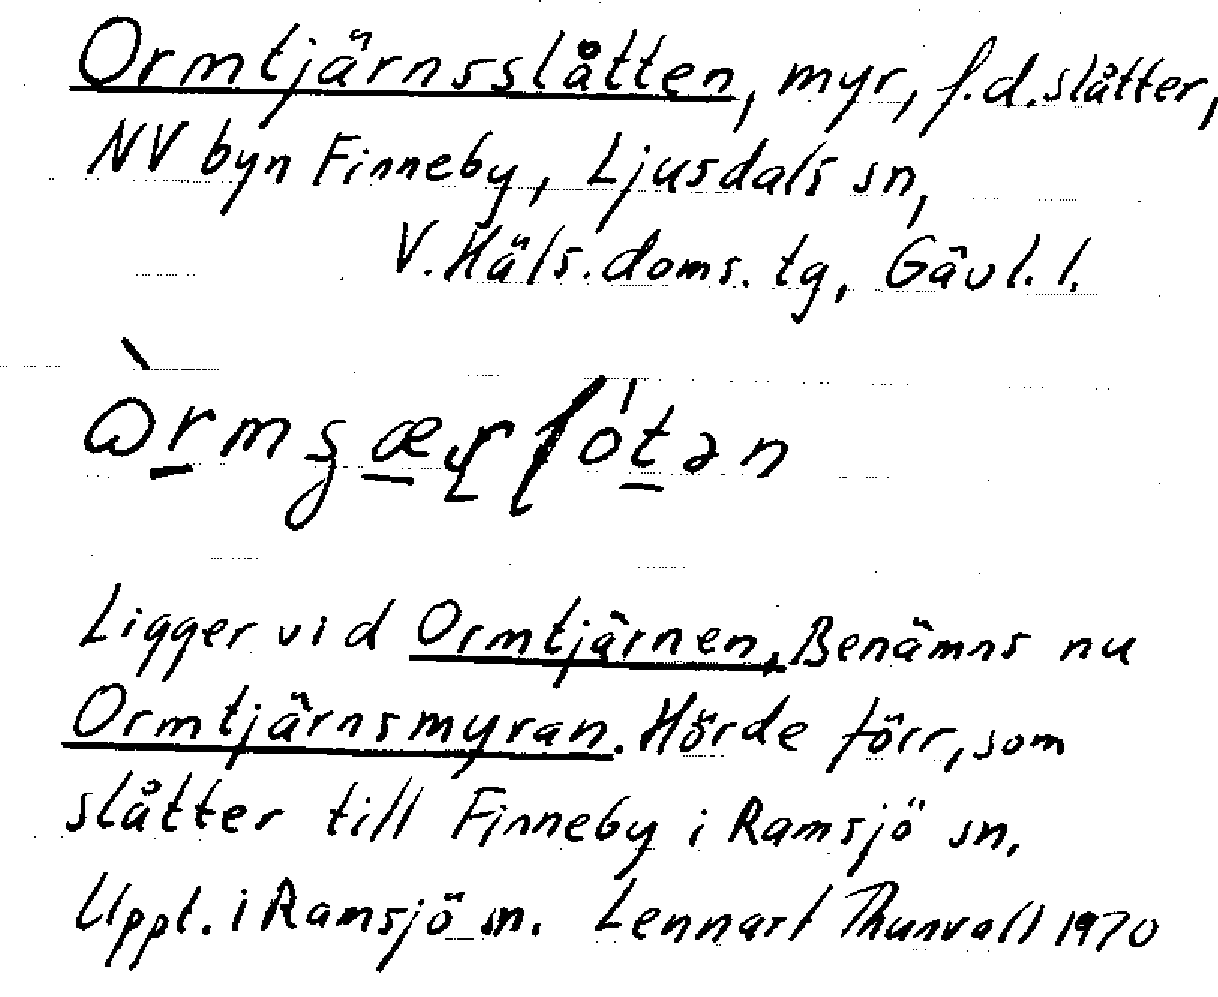 Ormtjärnsslåtten, myr, f.d. slåtter,
NV byn Finneby, Ljusdals sn,
V. Häls. doms. tg, Gävl. l.
Ligger vid Ormtjärnen. Benämns nu
Ormtjärnsmyran. Hörde förr, som
slåtter till Finneby i Ramsjö sn.
Uppt. i Ramsjö sn. Lennart Thunvall 1970